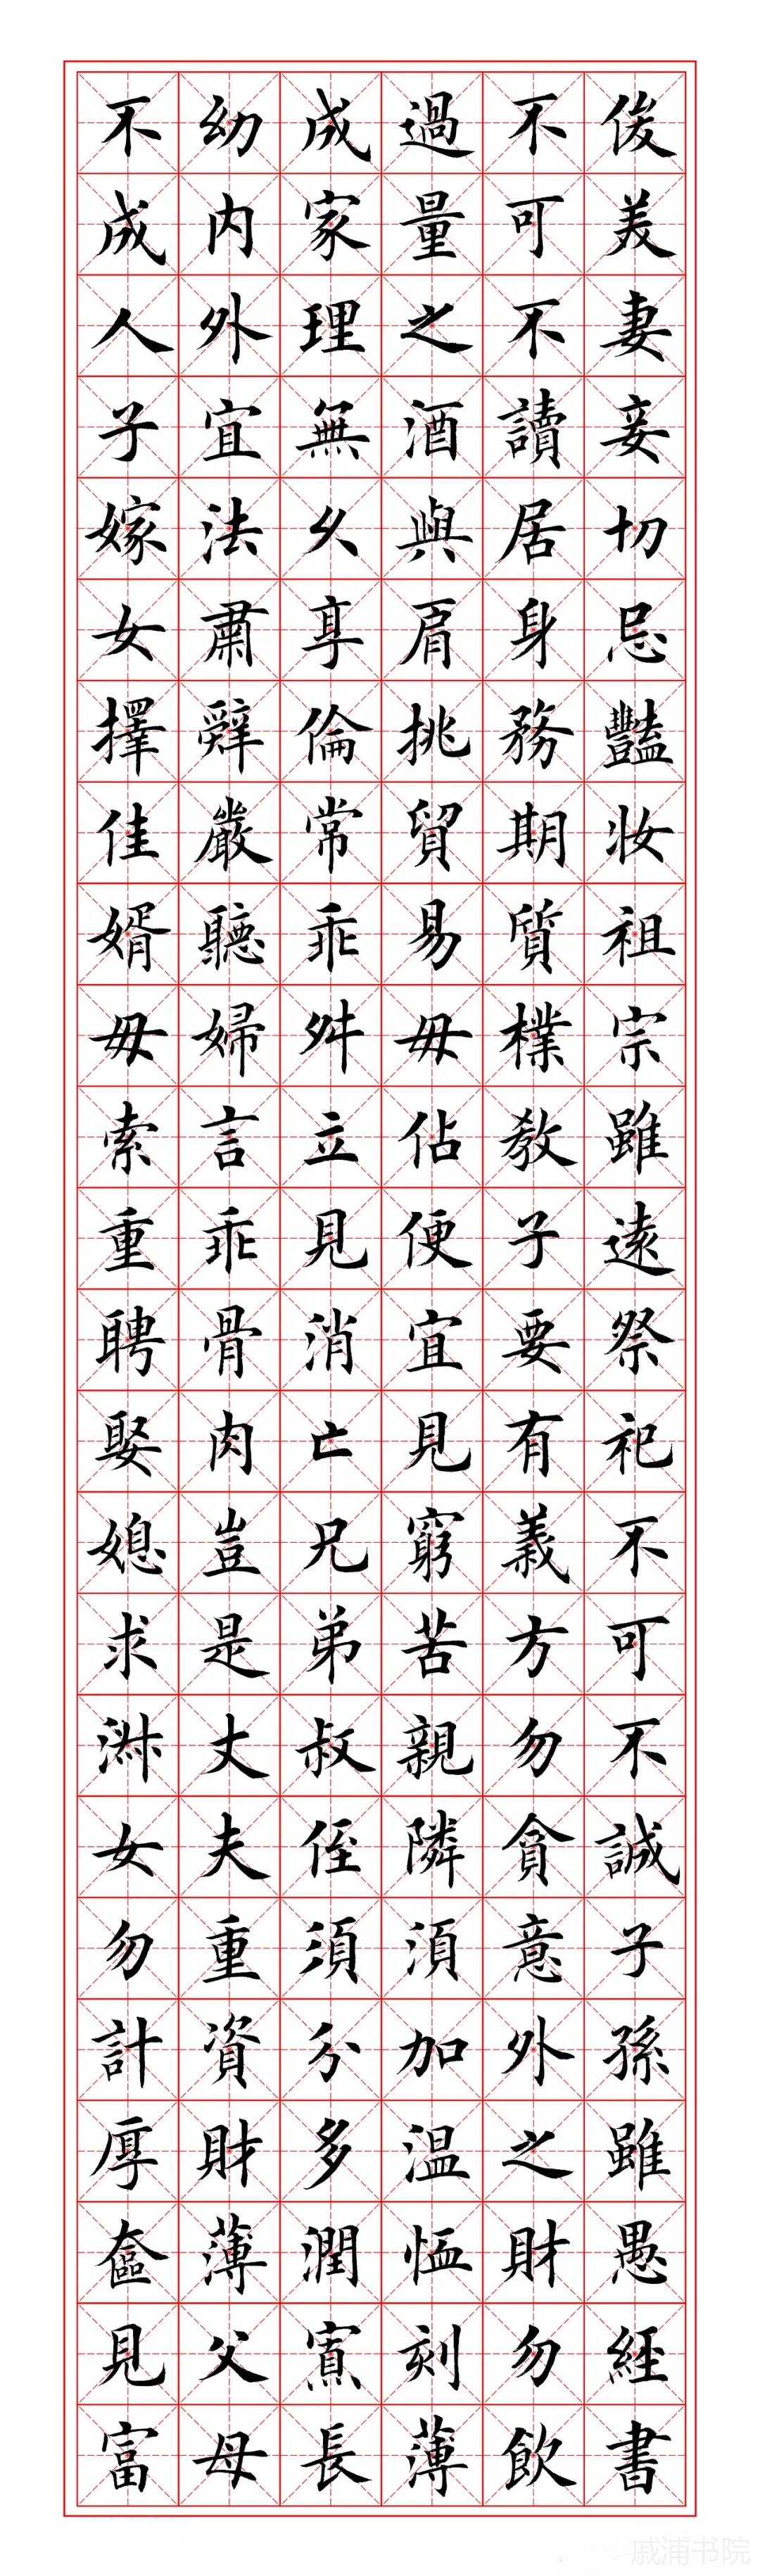 俊美妻妾切忌豔妝祖宗雖遠祭祀不可不誠子孫雖愚經書
不可不讀居身務期質樸教子要有義方勿貪意外之財勿飲
過量之酒與肩挑貿易毋佔便宜見窮苦親隣須加温恤刻薄
成家理無久享倫常乖舛立見消亡兄弟叔侄須分多潤寡長
幼内外宜法肅辭嚴聽婦言乖骨肉豈是丈夫重資財薄父母
不成人子嫁女擇佳婿毋索重聘娶媳求淑女勿計厚奩見富
戚浦书院